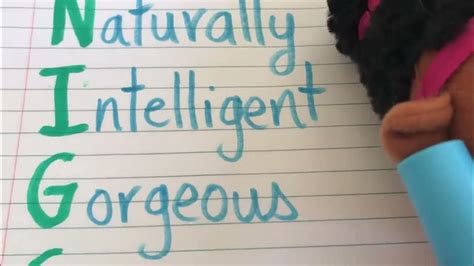 Naturally
Intelligent
Gorgeous